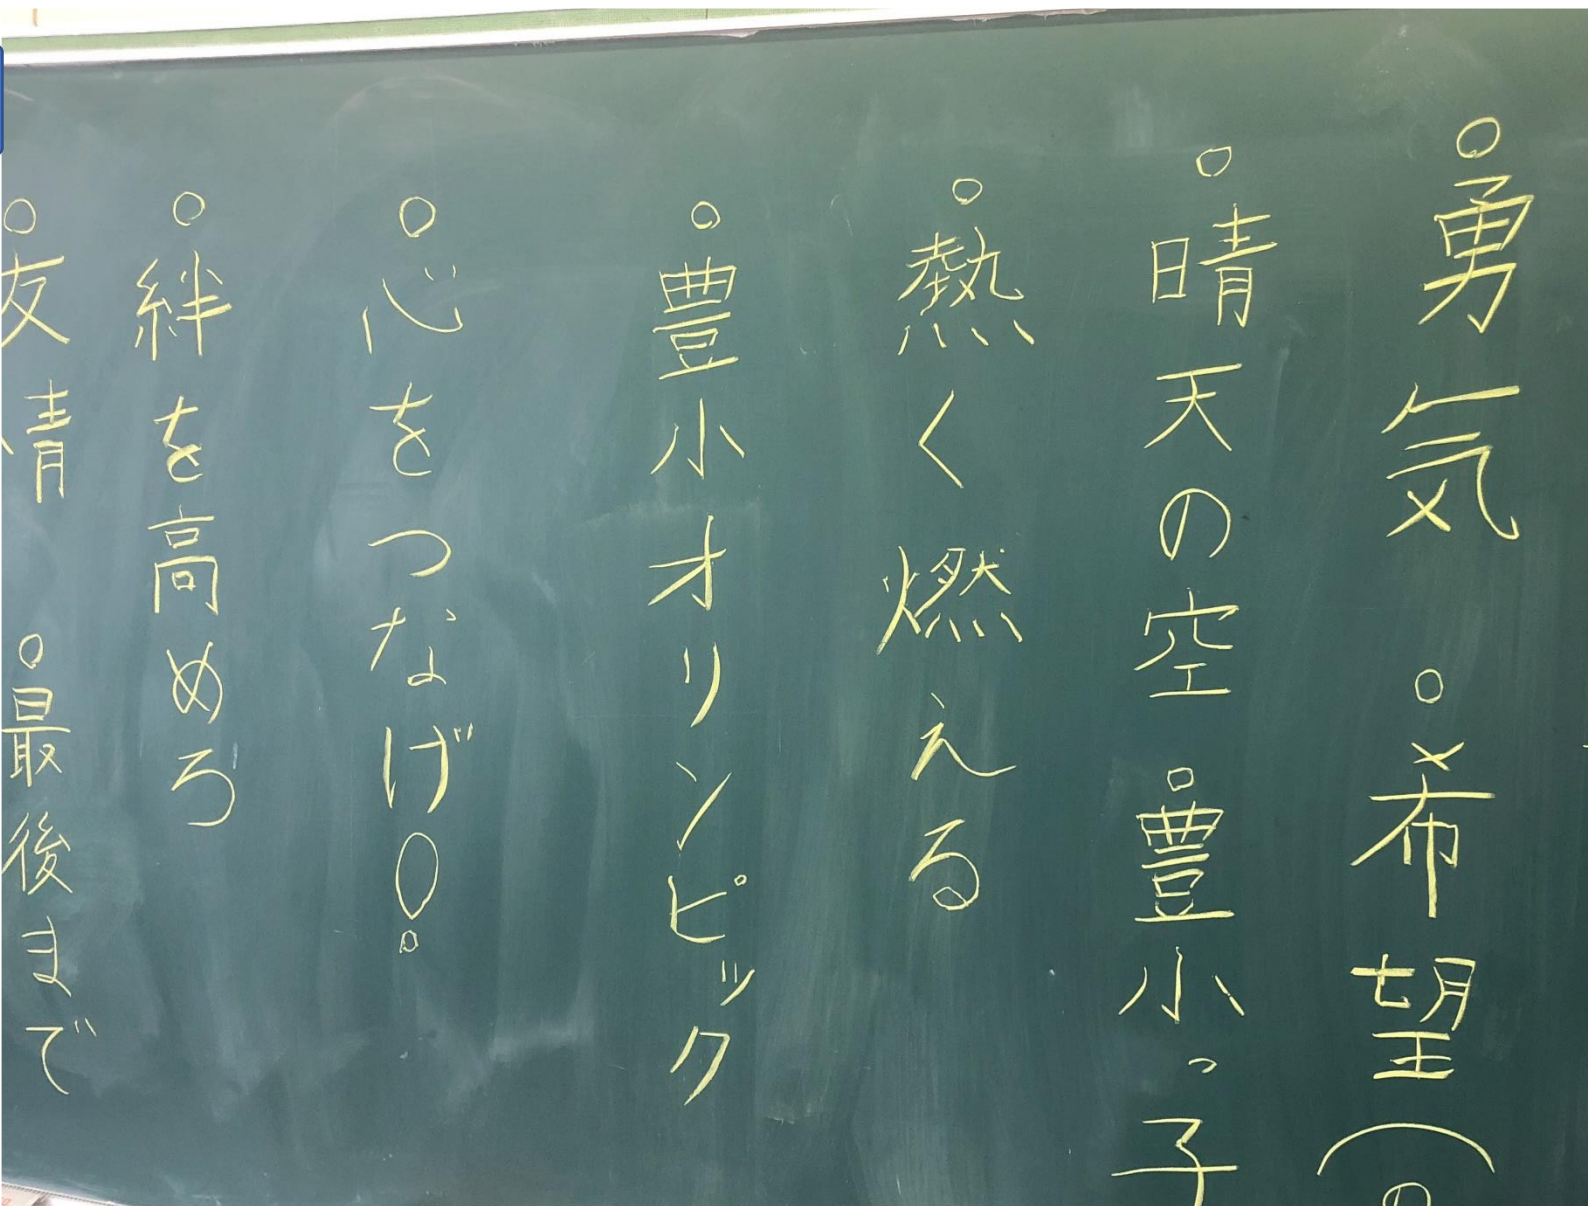 ○勇気 ○希望(の
○晴天の空 ○豊小っ子
○熱く燃える
○豊小オリンピック
○心をつなげ!
○絆を高めろ
○友情 ○最後まで